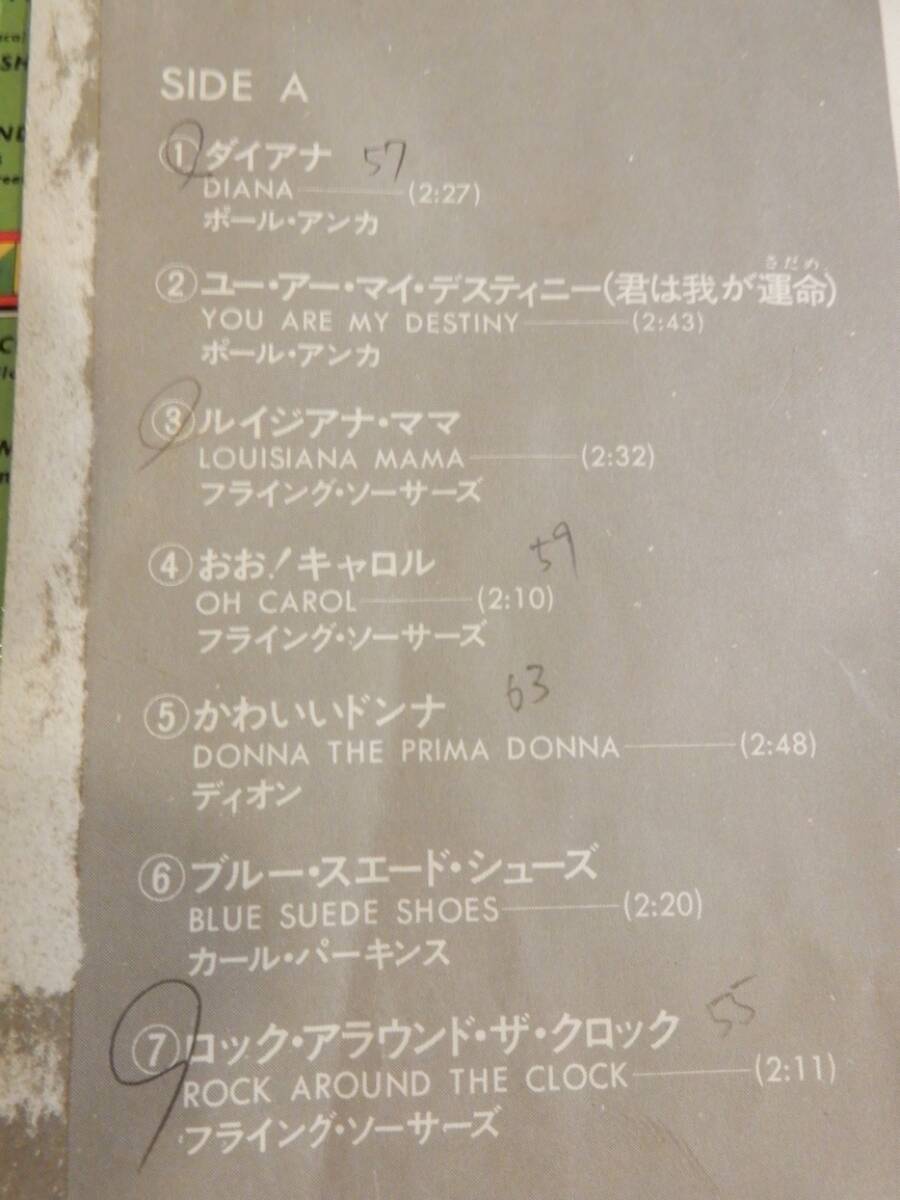 SIDE A
①ダイアナ 57
DIANA (2:27)
ポール・アンカ
さだめ
②ユー・アー・マイ・デスティニー(君は我が運命)
YOU ARE MY DESTINY (2:43)
ポール・アンカ
③ルイジアナ・ママ
LOUISIANA MAMA (2:32)
フライング・ソーサーズ
④おお！キャロル 59
OH CAROL (2:10)
フライング・ソーサーズ
⑤かわいいドンナ 63
DONNA THE PRIMA DONNA (2:48)
ディオン
⑥ブルー・スエード・シューズ
BLUE SUEDE SHOES (2:20)
カール・パーキンス
⑦ロック・アラウンド・ザ・クロック 55
ROCK AROUND THE CLOCK (2:11)
フライング・ソーサーズ